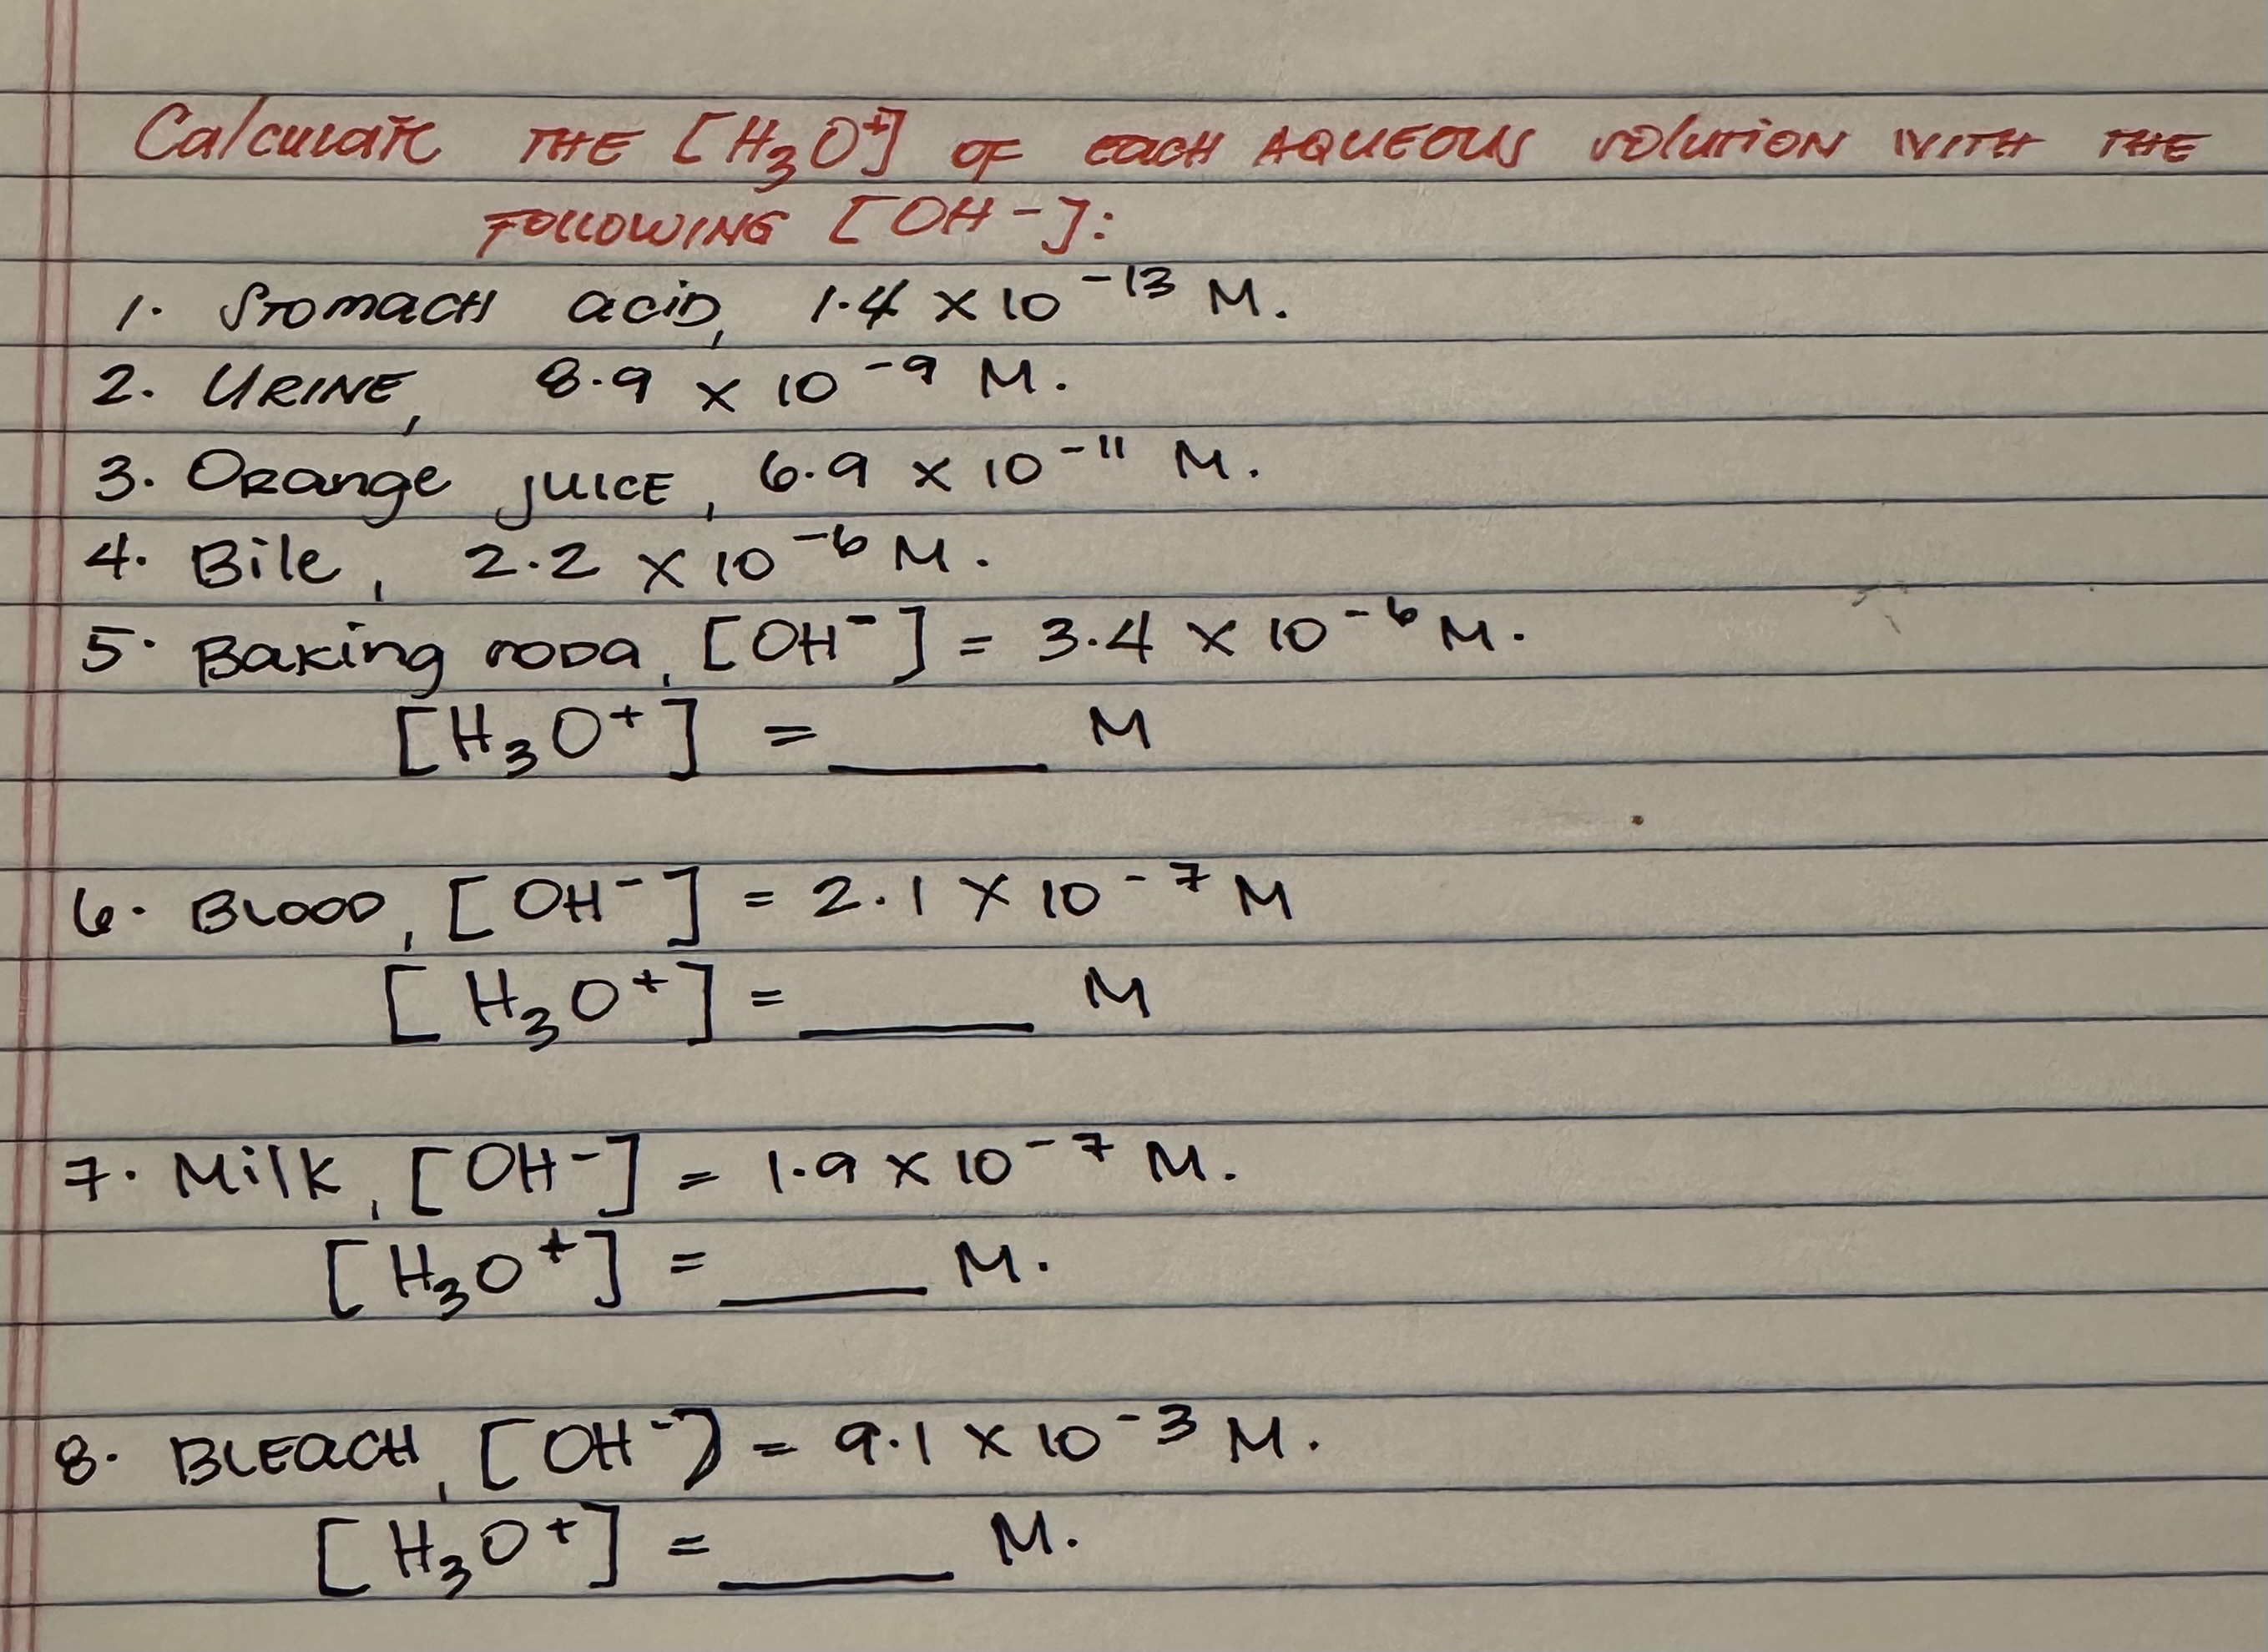 Calculate THE [H₃O⁺] OF each AQUEOUS solution WITH THE
FOLLOWING [OH⁻]:
1. Stomach acid, 1.4 × 10⁻¹³ M.
2. URINE, 8.9 × 10⁻⁹ M.
3. Orange juice, 6.9 × 10⁻¹¹ M.
4. Bile, 2.2 × 10⁻⁶ M.
5. Baking soda, [OH⁻] = 3.4 × 10⁻⁶ M.
[H₃O⁺] = _____ M
6. BLOOD, [OH⁻] = 2.1 × 10⁻⁷ M
[H₃O⁺] = _____ M
7. Milk, [OH⁻] = 1.9 × 10⁻⁷ M.
[H₃O⁺] = _____ M.
8. BLEACH, [OH⁻) = 9.1 × 10⁻³ M.
[H₃O⁺] = _____ M.